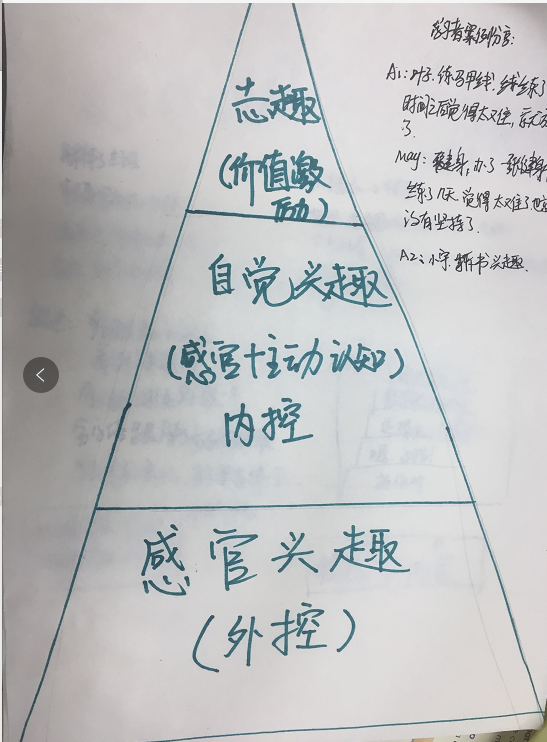 志趣
(价值激
励)
自觉兴趣
(感官+主动认知)
内控
感官兴趣
(外控)
学习者案例分享:
A1: 叶子. 练马甲线, 练了
时间后觉得太难,
了.
May: 健身, 办了一张健身
练了几天, 觉得太难了
没有坚持了.
A2: 小宇. 书兴趣.